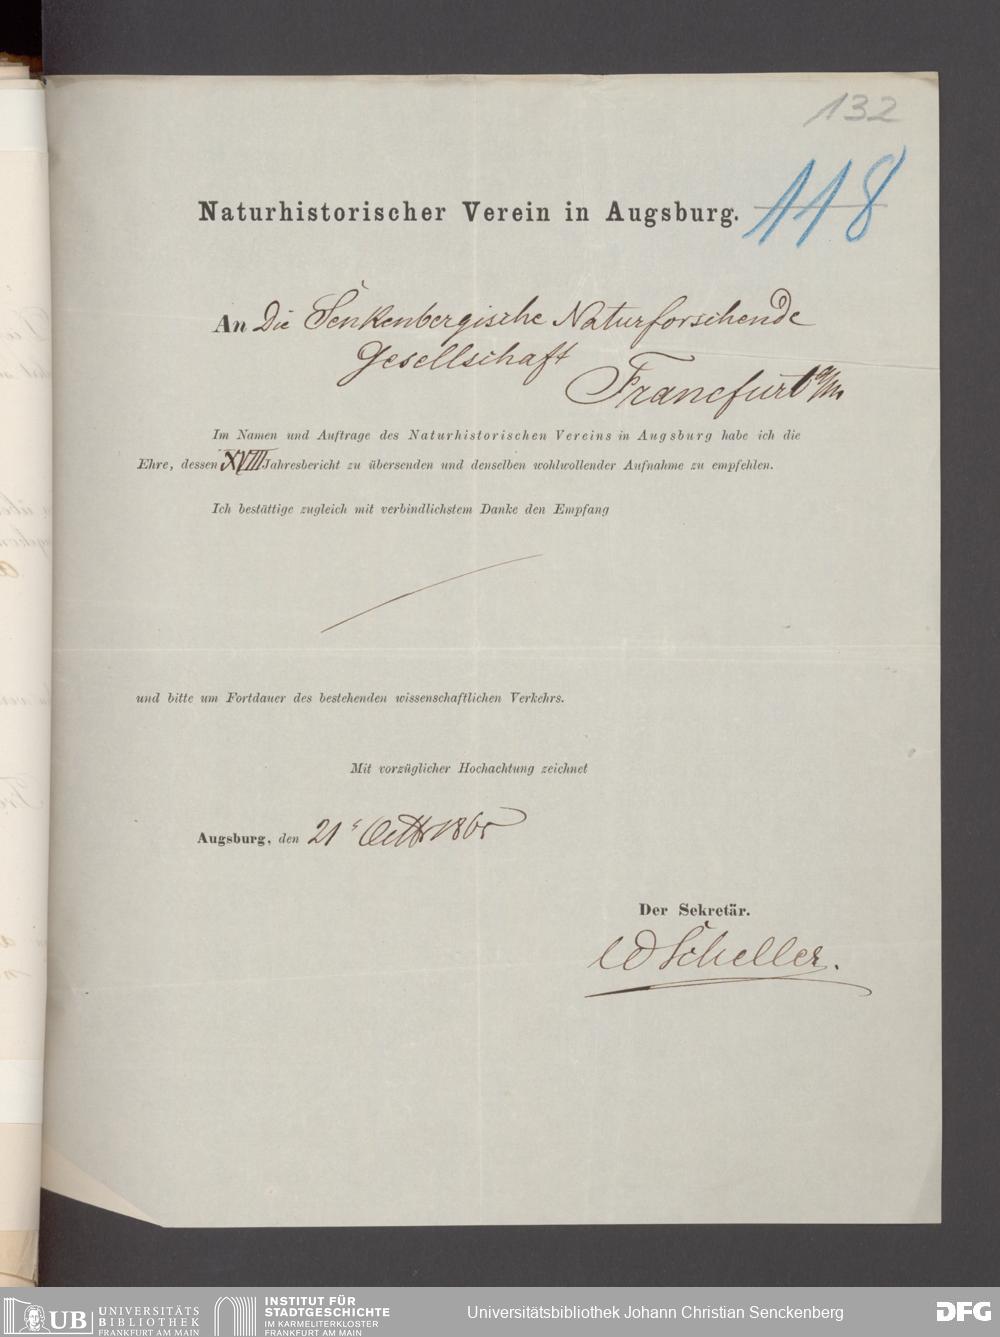 132
118
Naturhistorischer Verein in Augsburg.
An Die Senkenbergische Naturforschende
Gesellschaft
Francfurt a/m
Im Namen und Auftrage des Naturhistorischen Vereins in Augsburg habe ich die
Ehre, dessen XVIII Jahresbericht zu übersenden und denselben wohlwollender Aufnahme zu empfehlen.
Ich bestättige zugleich mit verbindlichstem Danke den Empfang
und bitte um Fortdauer des bestehenden wissenschaftlichen Verkehrs.
Mit vorzüglicher Hochachtung zeichnet
Augsburg, den 21 Octbr 1865
Der Sekretär.
Scheller.
UB UNIVERSITÄTS
BIBLIOTHEK
FRANKFURT AM MAIN
INSTITUT FÜR
STADTGESCHICHTE
IM KARMELITERKLOSTER
FRANKFURT AM MAIN
Universitätsbibliothek Johann Christian Senckenberg
DFG